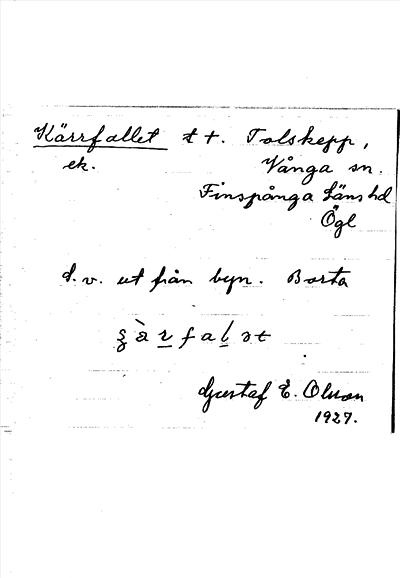 Kärrfallet t t. Tolskepp,
ek. Vånga sn.
Finspånga Läns hd
Ögl
d.v. ut från byn. Borta
Gustaf E. Olsson
1927.